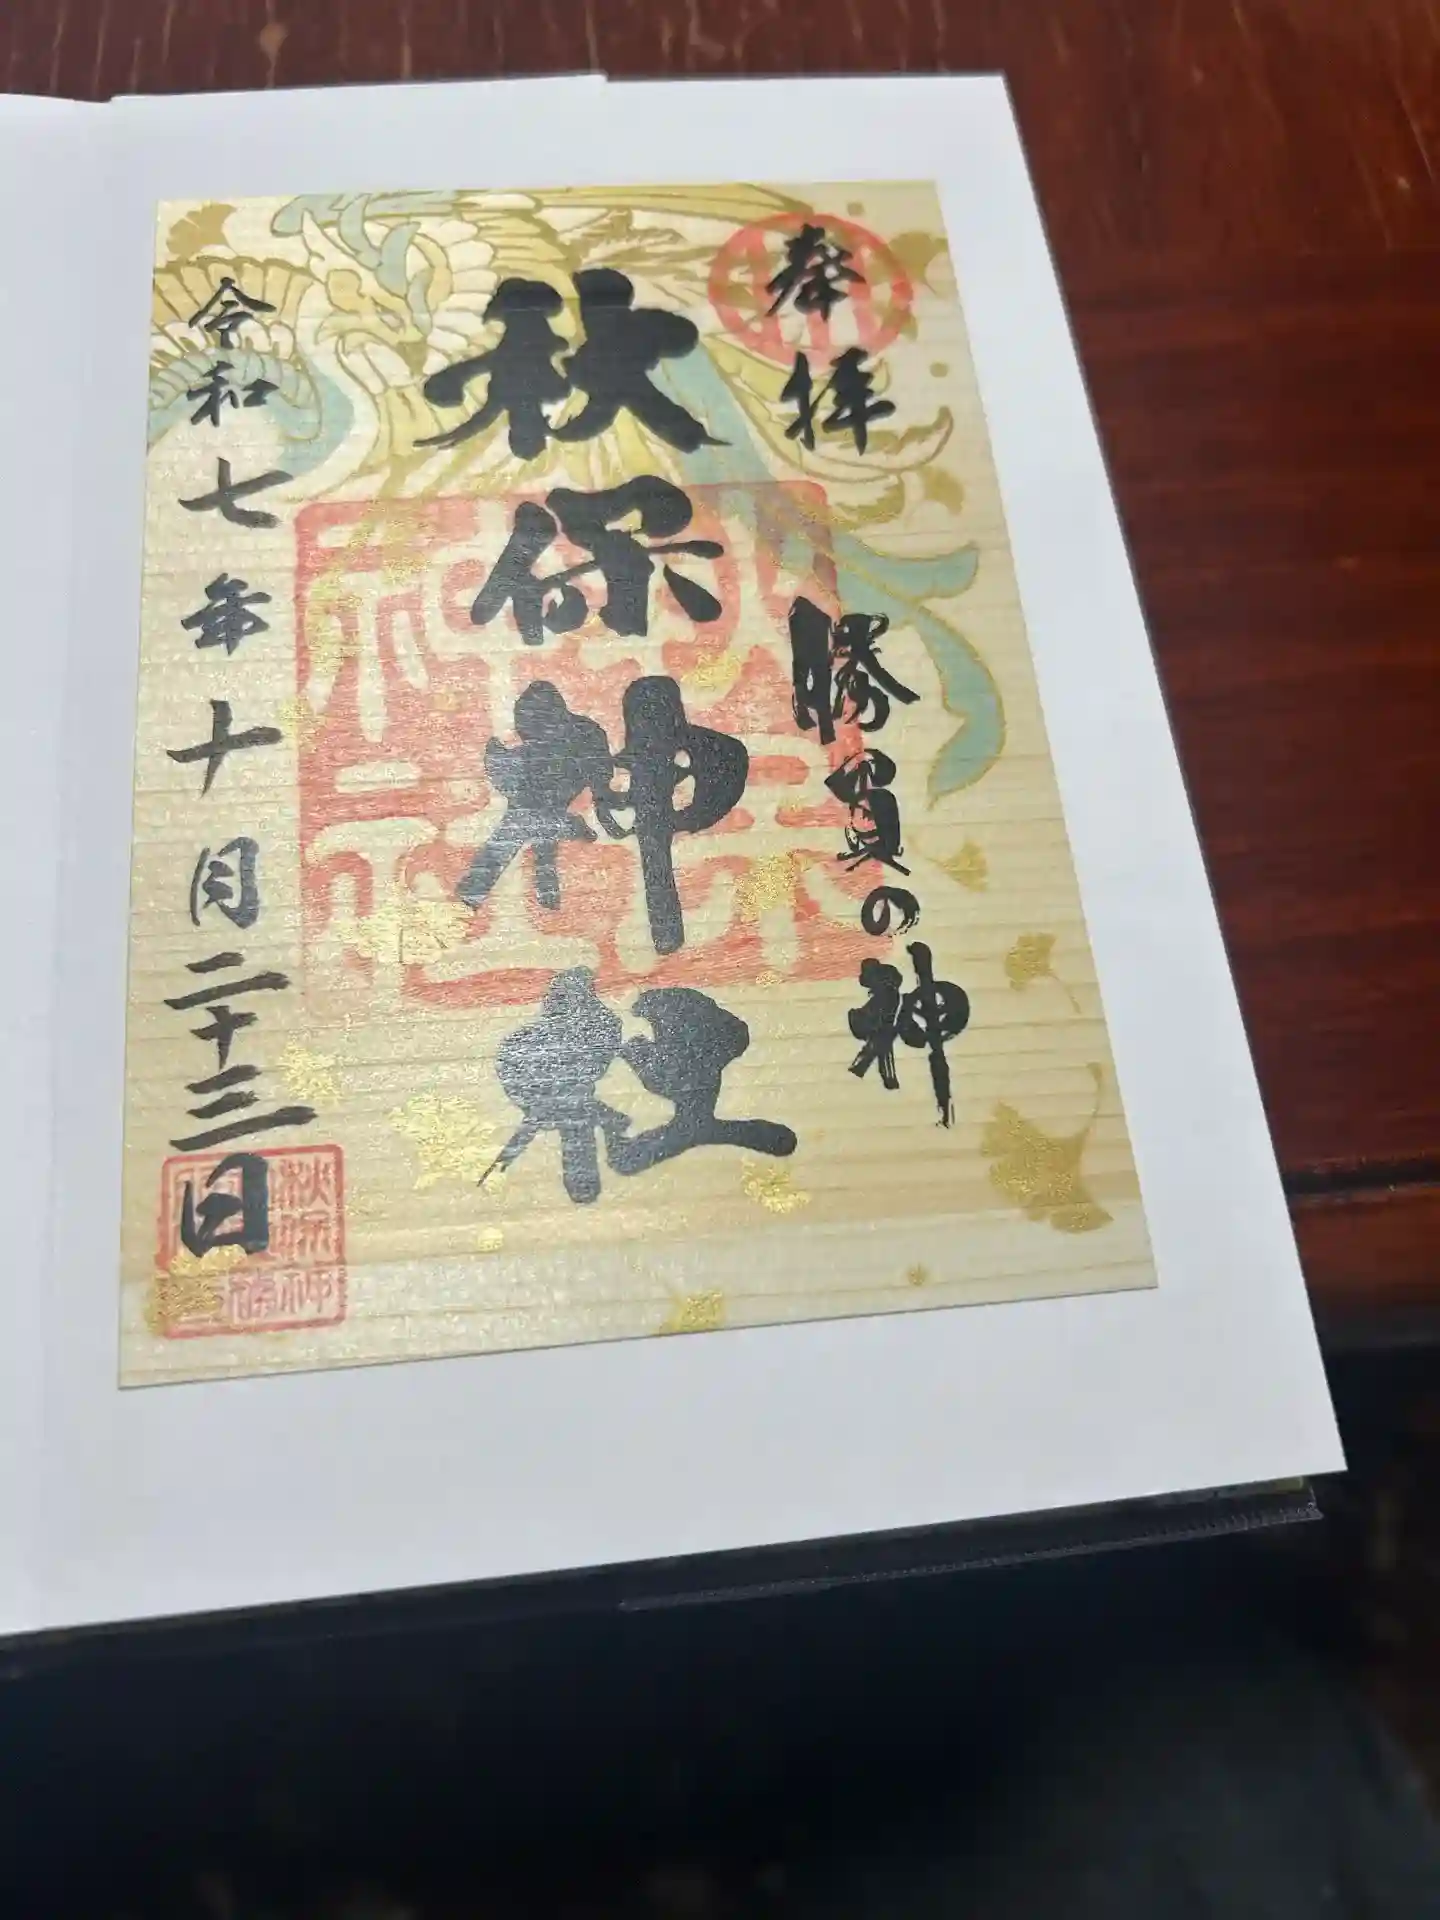 奉拝
勝負の神
秋保神社
令和七年十月二十三日